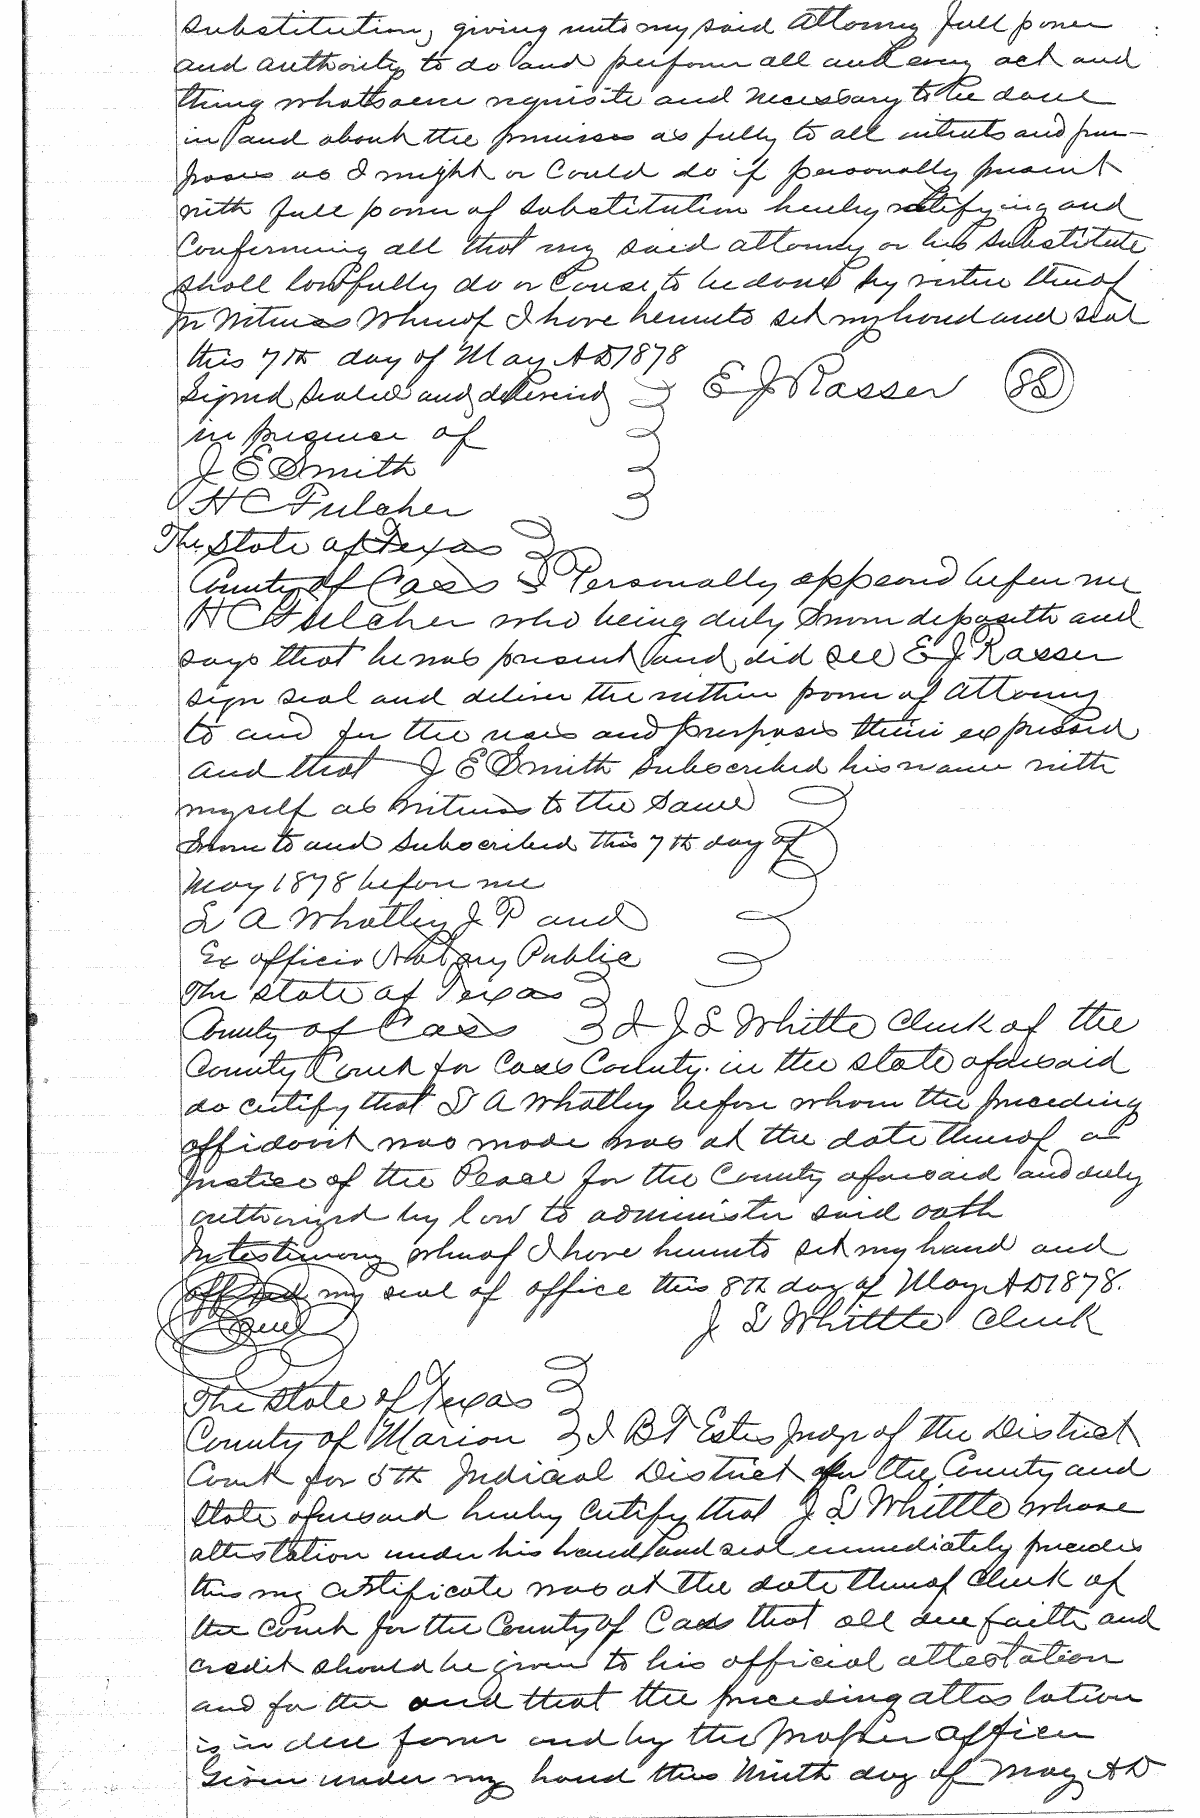 substitution, giving unto my said Attorney full power
and authority to do and perform all and every act and
thing whatsoever requisite and necessary to be done
in and about the premises as fully to all intents and pur-
poses as I might or Could do if personally present
with full power of substitution hereby ratifying and
Confirming all that my said attorney or his substitute
shall lawfully do or Cause to be done by virtue thereof
In Witness Whereof I have hereunto set my hand and seal
this 7th day of May AD 1878
Signed Sealed and delivered E J Rasser
in presence of
J E Smith
H C Fulcher
The State of Texas
County of Cass Personally appeared before me
H C Fulcher who being duly Sworn deposeth and
says that he was present and did see E J Rasser
sign seal and deliver the within power of Attorney
to and for the uses and purposes therein expressed
and that J E Smith Subscribed his name with
myself as Witness to the Same
Sworn to and Subscribed this 7th day of
May 1878 before me
L A Whatley J P and
Ex officio Notary Public
The State of Texas
County of Cass I J L Whittle Clerk of the
County Court for Cass County in the state aforesaid
do certify that L A Whatley before whom the preceding
affidavit was made was at the date thereof a
Justice of the Peace for the County aforesaid and duly
authorized by law to administer said oath
In testimony whereof I have hereunto set my hand and
affixed my seal of office this 8th day of May AD 1878.
Seal J L Whittle Clerk
The State of Texas
County of Marion I B T Estes Judge of the District
Court for 5th Judicial District for the County and
State aforesaid hereby certify that J L Whittle whose
attestation under his hand and seal immediately precedes
this my certificate was at the date thereof Clerk of
the Court for the County of Cass that all due faith and
credit should be given to his official attestation
and for the and that the preceding attestation
is in due form and by the proper officer
Given under my hand this Ninth day of May AD